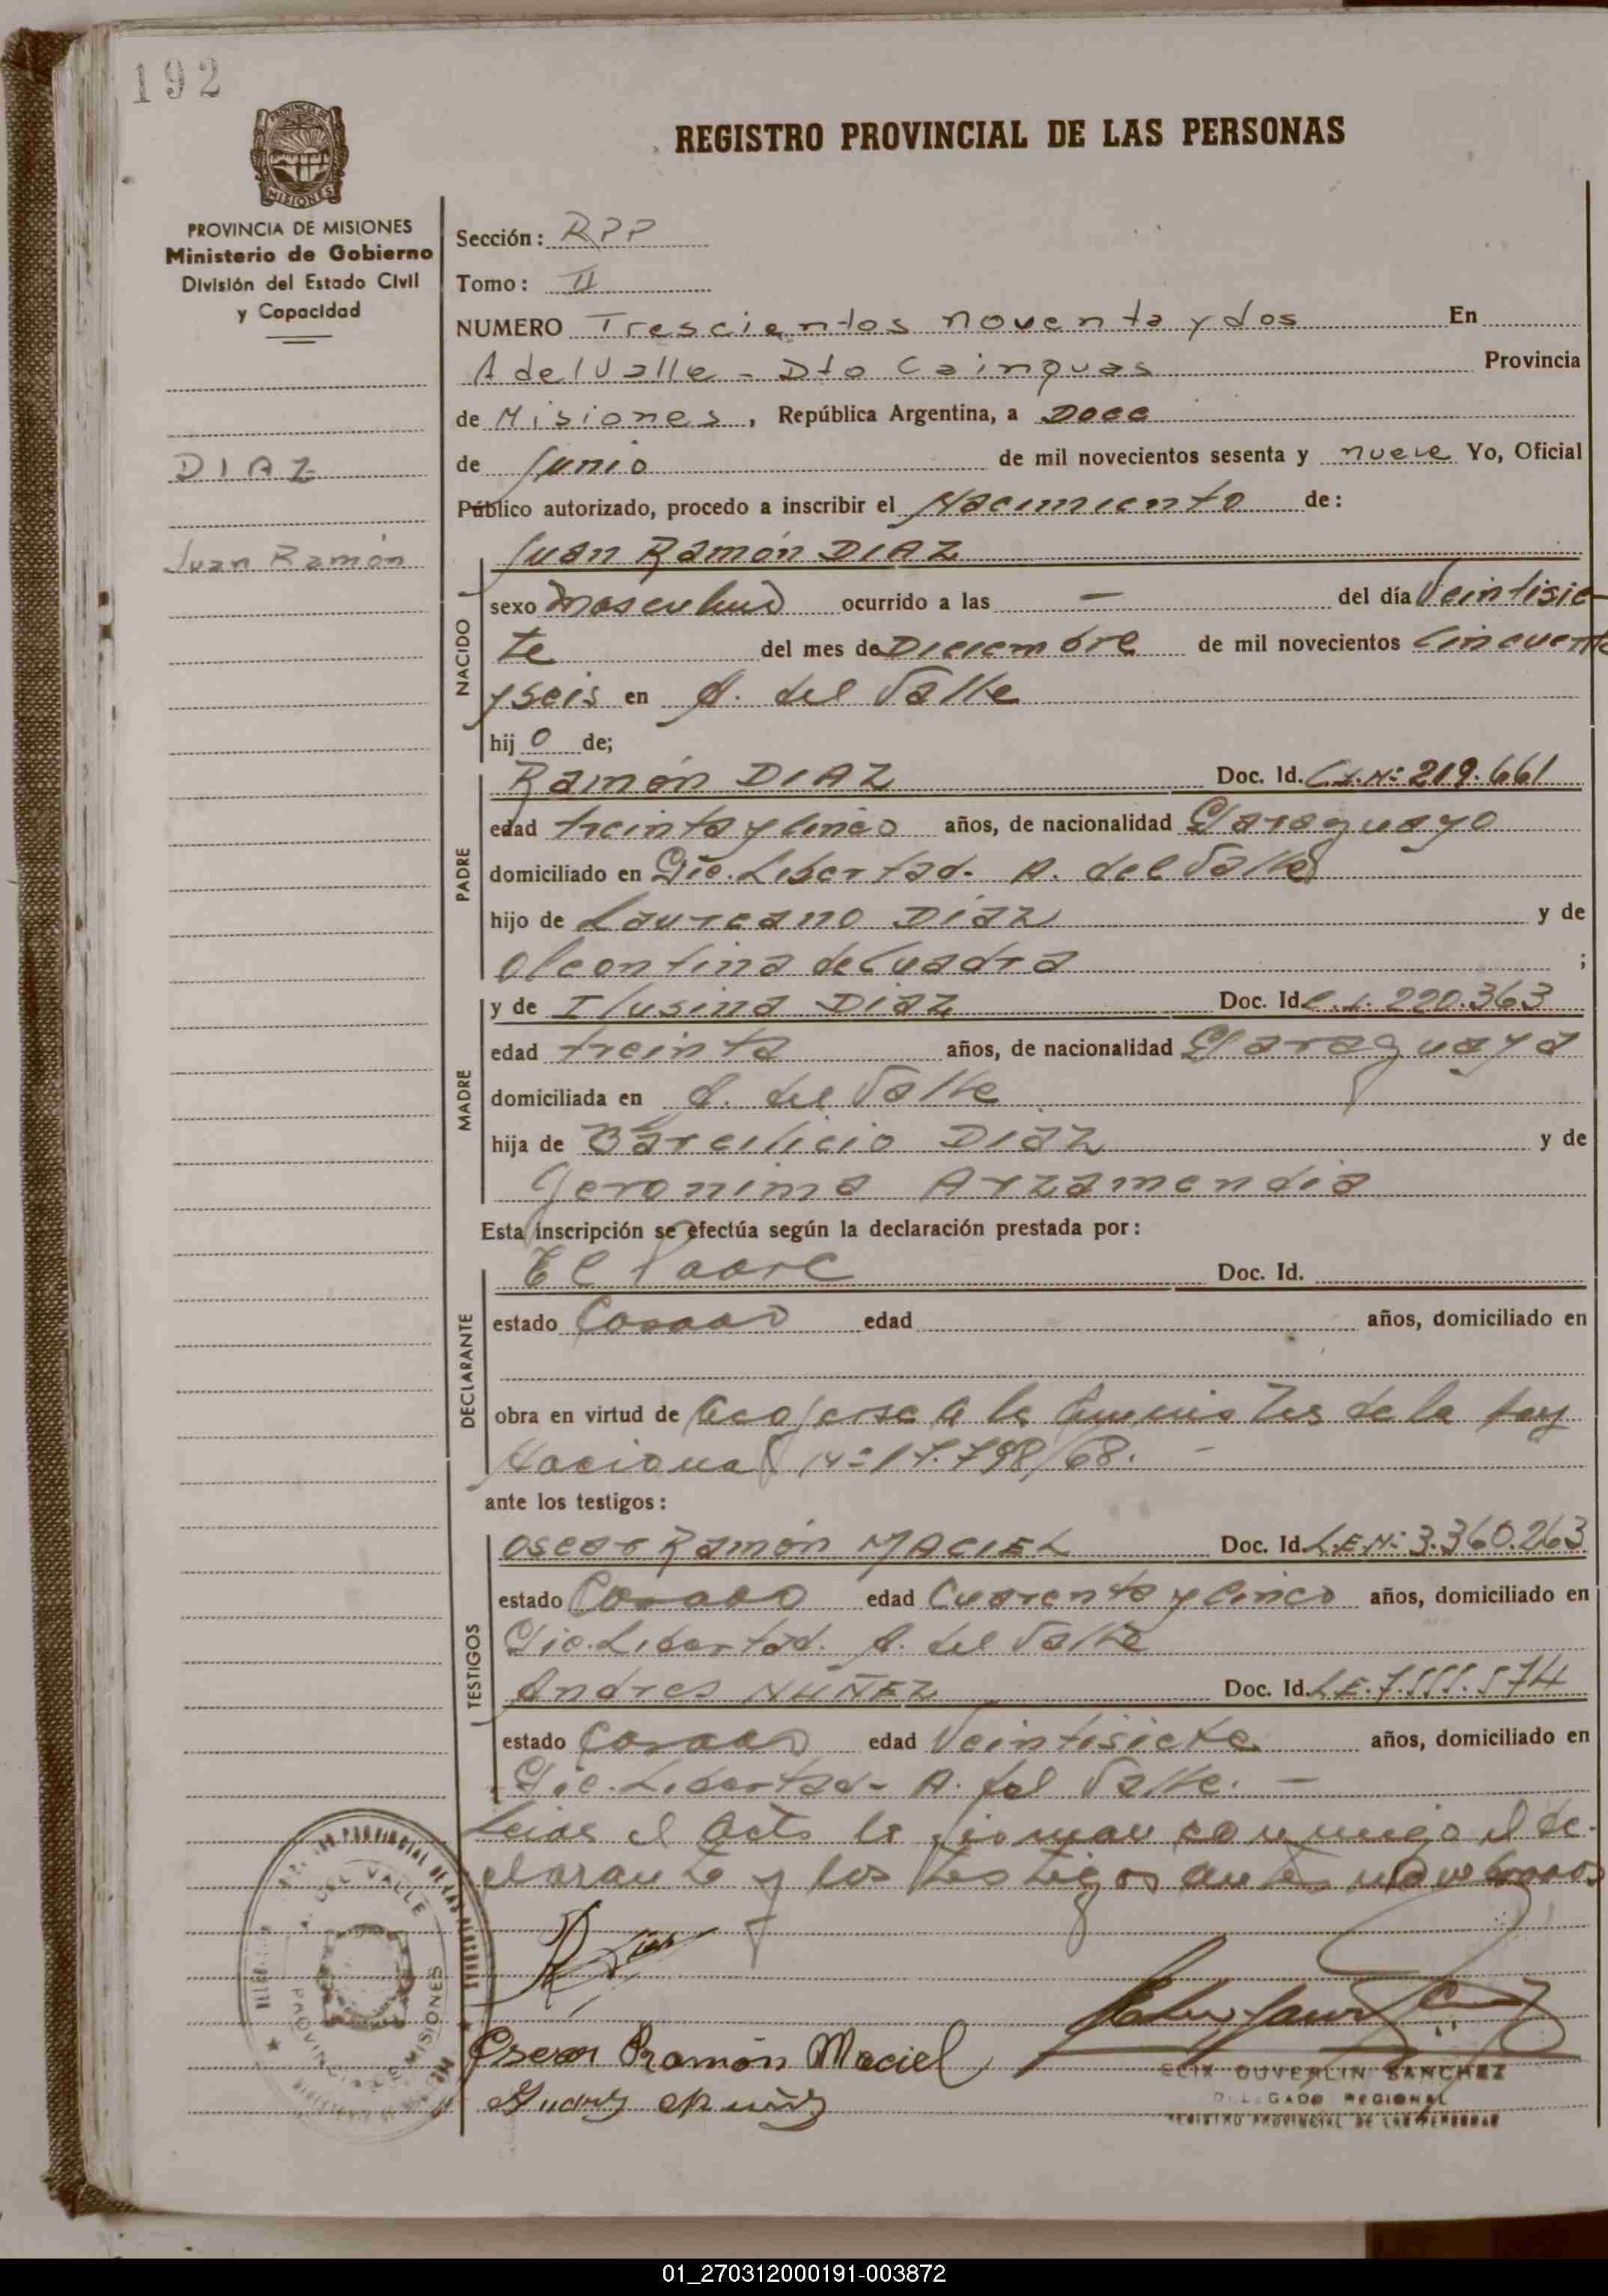 192
REGISTRO PROVINCIAL DE LAS PERSONAS
PROVINCIA DE MISIONES
Ministerio de Gobierno
División del Estado Civil
y Capacidad
DIAZ
Juan Ramón
Sección: RPP
Tomo: II
NUMERO Trescientos noventa y dos En
A del Valle - Dto Cainguas Provincia
de Misiones, República Argentina, a Doce
de Junio de mil novecientos sesenta y nueve Yo, Oficial
Público autorizado, procedo a inscribir el Nacimiento de:
NACIDO
Juan Ramón DIAZ
sexo Masculino ocurrido a las — del día Veintisie
te del mes de Diciembre de mil novecientos Cincuenta
y seis en A. del Valle
hij o de;
PADRE
Ramón DIAZ Doc. Id. C.I. Nº 219.661
edad treinta y cinco años, de nacionalidad Paraguayo
domiciliado en Pic. Libertad - A. del Valle
hijo de Laureano Diaz y de
Oleontina de Cuadra ;
MADRE
y de Ilusina Diaz Doc. Id. C.I. 220.363
edad treinta años, de nacionalidad Paraguaya
domiciliada en A. del Valle
hija de Barcilicio Diaz y de
Geronima Arzamendia
Esta inscripción se efectúa según la declaración prestada por:
DECLARANTE
El Padre Doc. Id.
estado Casado edad años, domiciliado en
obra en virtud de acojerse a la de la Ley
Nacional Nº 17.798/68. -
ante los testigos:
TESTIGOS
Oscar Ramón MACIEL Doc. Id. L.E.Nº 3.360.263
estado Casado edad Cuarenta y cinco años, domiciliado en
Pic. Libertad. A. del Valle
Andres NUÑEZ Doc. Id. L.E. 7.555.574
estado Casado edad Veintisiete años, domiciliado en
Pic. Libertad - A. del Valle. —
Leida el Acta la firman conmigo el de-
clarante y los testigos antes nombrados
Oscar Ramón Maciel
DUVERLIN SANCHEZ
DELEGADO REGIONAL
REGISTRO PROVINCIAL DE LAS PERSONAS
A. DEL VALLE
PROVINCIA DE MISIONES
01_270312000191-003872